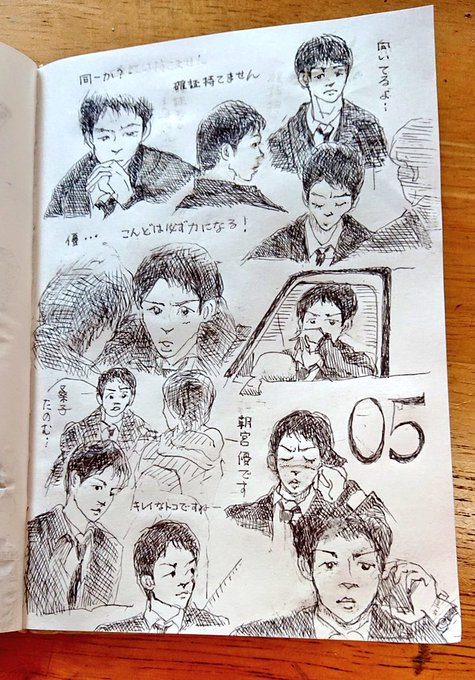 同一か?
確証持てません
向いてるよ…
優… こんどは必ず力になる!
桑子
たのむ…
朝宮優です
キレイなトコですネー
05